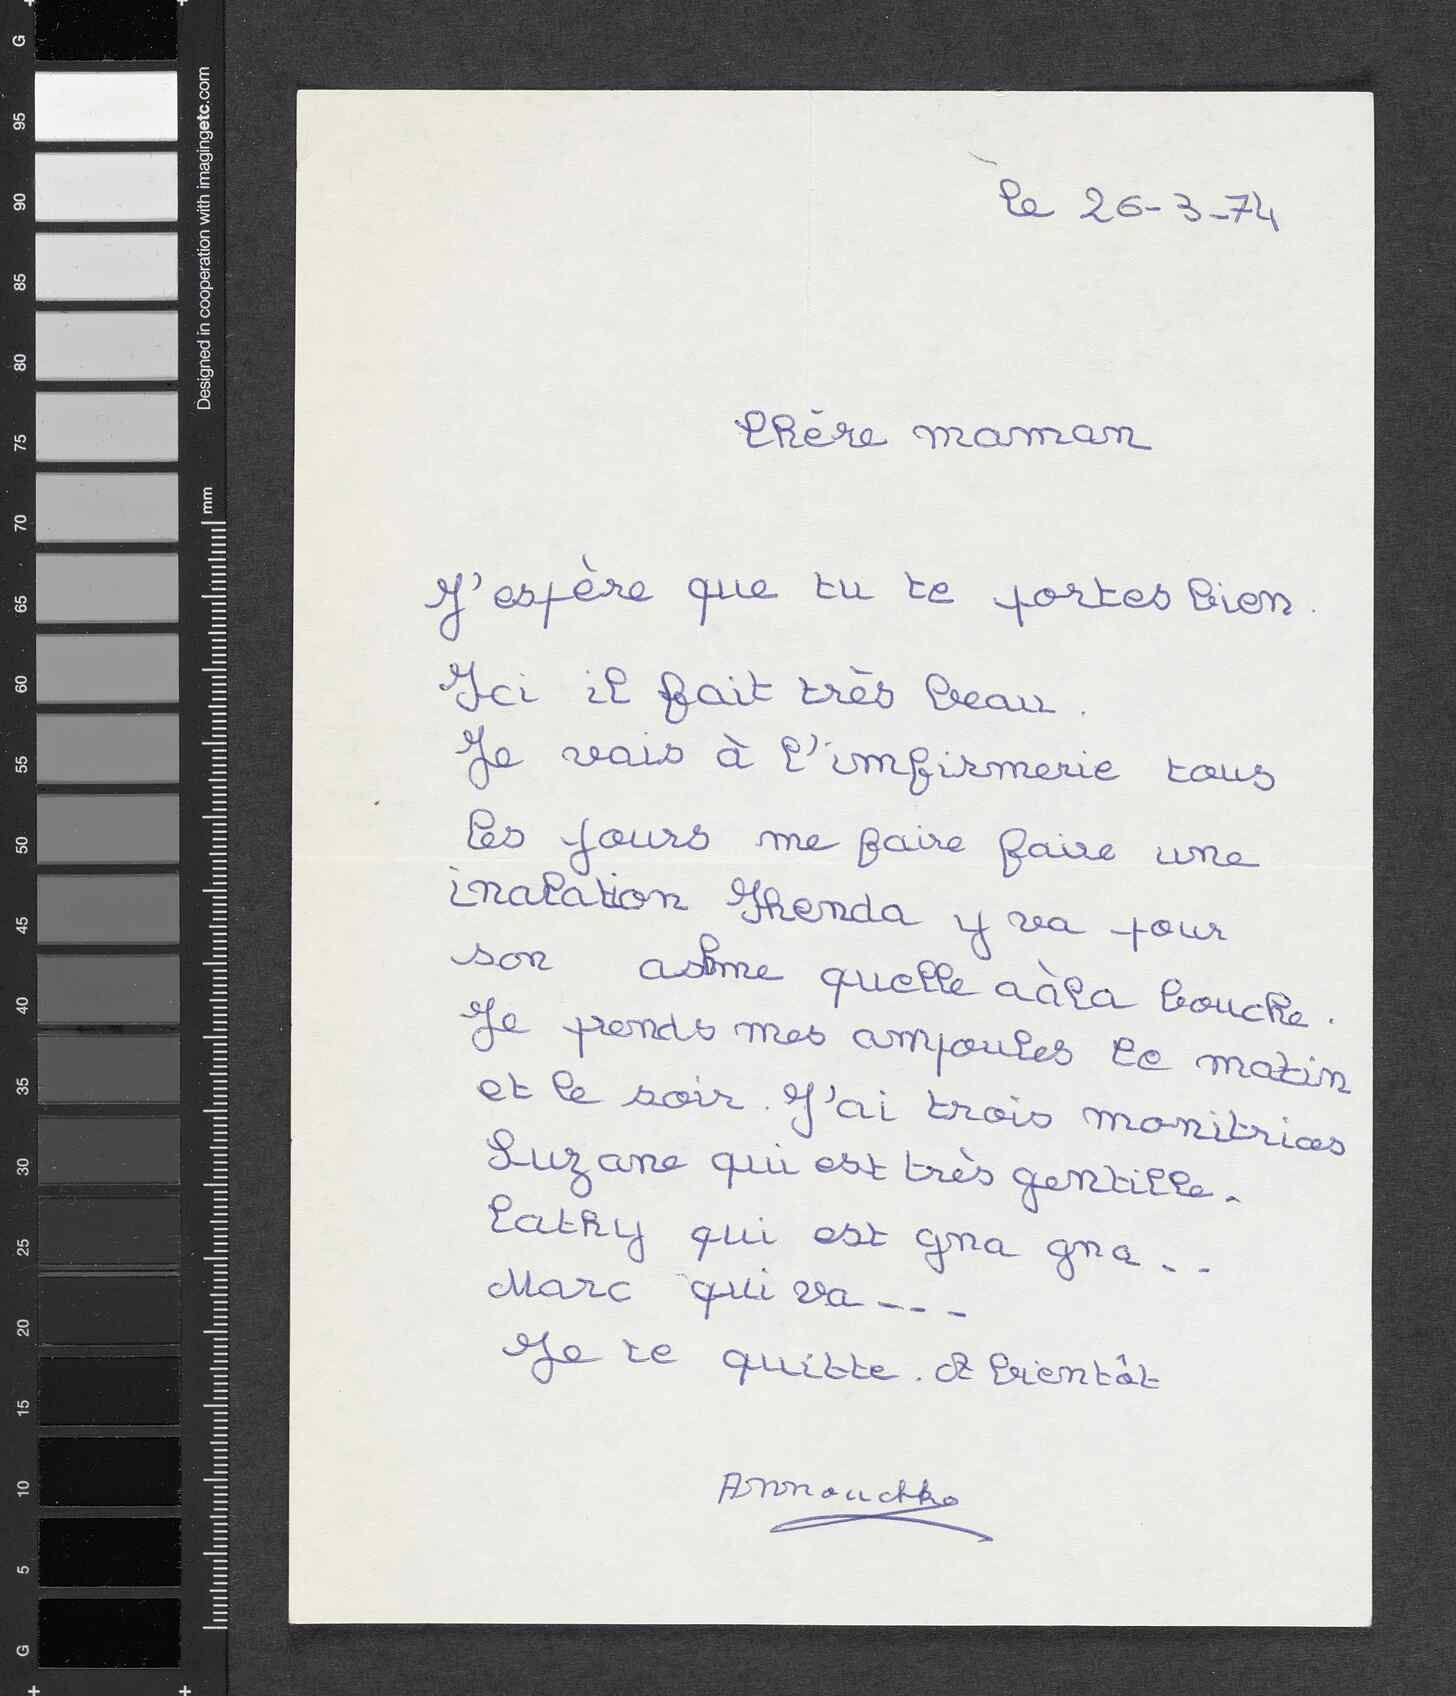 le 26-3-74
Chère maman
J'espère que tu te portes bien.
Ici il fait très beau.
Je vais à l'imfirmerie tous
les jours me faire faire une
inalation Ghenda y va pour
son asthme quelle a à la bouche.
Je prends mes ampoules le matin
et le soir. J'ai trois monitrices
Suzane qui est très gentille.
Cathy qui est gna gna...
Marc qui va ---
Je te quitte. A bientôt
Annouchka
G 95 90 85 80 75 70 65 60 55 50 45 40 35 30 25 20 15 10 5 G
Designed in cooperation with imagingetc.com
mm